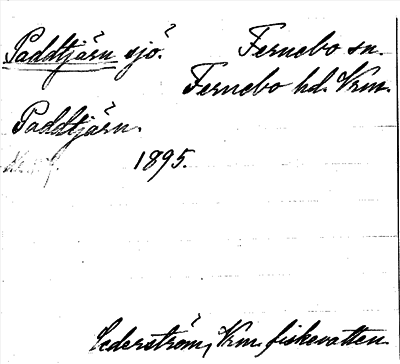 Paddtjärn sjö. Fernebo sn.
Fernebo hd. Vrm.
Paddtjärn.
1895.
Cederström, Vrm. fiskevatten